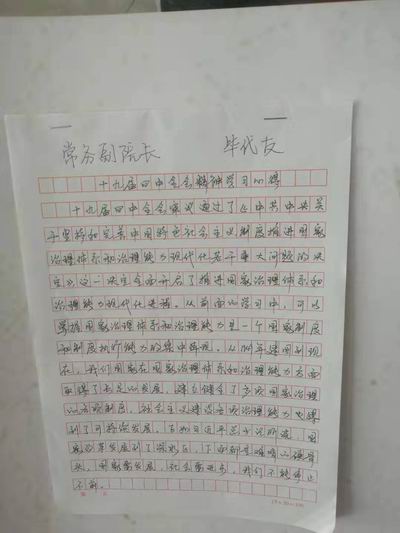 常务副院长 毕代友
十九届四中全会精神学习心得
十九届四中全会审议通过了《中共中央关
于坚持和完善中国特色社会主义制度推进国家
治理体系和治理能力现代化若干重大问题的决
定》,这一决定全面开启了推进国家治理体系和
治理能力现代化。从前面的学习中,可以
掌握国家治理体系和治理能力是一个国家制度
和制度执行能力的集中体现。从1949年建国到现
在,我们国家在国家治理体系和治理能力方面
取得了长足的发展,建立健全了国家治理
的各项制度,社会主义建设治理能力也得
到了可持续发展。
国家要发展,社会要进步,我们不能停止
不前。